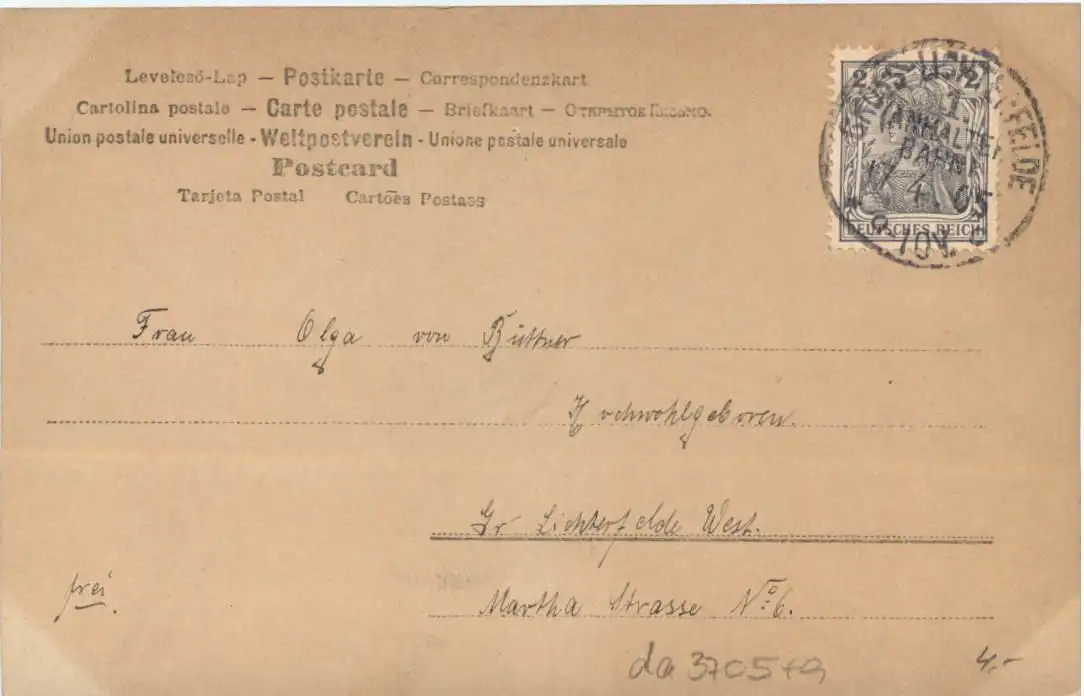 Levelező-Lap — Postkarte — Correspondenzkart
Cartolina postale — Carte postale — Briefkaart —
Union postale universelle - Weltpostverein - Unione postale universale
Postcard
Tarjeta Postal Cartões Postaes
2 2
DEUTSCHES REICH
GROSS-LICHTERFELDE
1.
(ANHALTER
BAHN)
17.4.05
9-10V.
Frau Olga von Büttner
Hochwohlgeboren.
Gr Lichterfelde West.
Martha Strasse No: 6.
frei.
da 3705+9
4,-